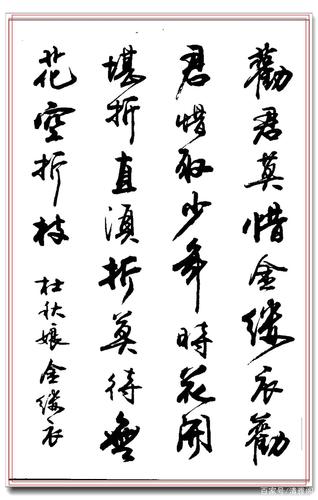 勸君莫惜金縷衣勸
君惜取少年時花開
堪折直須折莫待無
花空折枝
杜秋娘金縷衣
百家号/